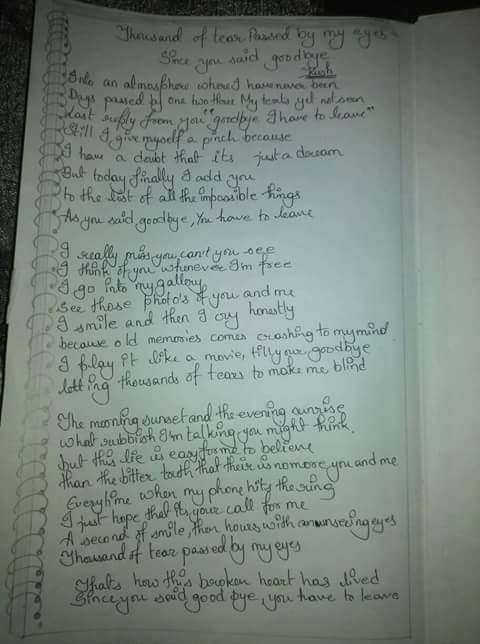 Thousand of tear Passed by my eyes
Since you said goodbye
Kush
Into an atmosphere where I have never been
Days passed by one two three My texts yet not seen
Last reply from you "goodbye I have to leave"
Still I give myself a pinch because
I have a doubt that its just a dream
But today finally I add you
to the list of all the impossible things
As you said goodbye, You have to leave
I really miss you, can't you see
I think of you whenever I'm free
I go into my gallery
See those photo's of you and me
I smile and then I cry honestly
because old memories comes crashing to my mind
I play it like a movie, till your goodbye
letting thousands of tears to make me blind
The morning sunset and the evening sunrise
what rubbish I'm talking you might think.
but this lie is easy for me to believe
than the bitter truth that their is no more you and me
Everytime when my phone hits the ring
I just hope that its your call for me
A second of smile, then hours with an unseeing eyes
Thousand of tear passed by my eyes
That's how this broken heart has lived
Since you said good bye, you have to leave